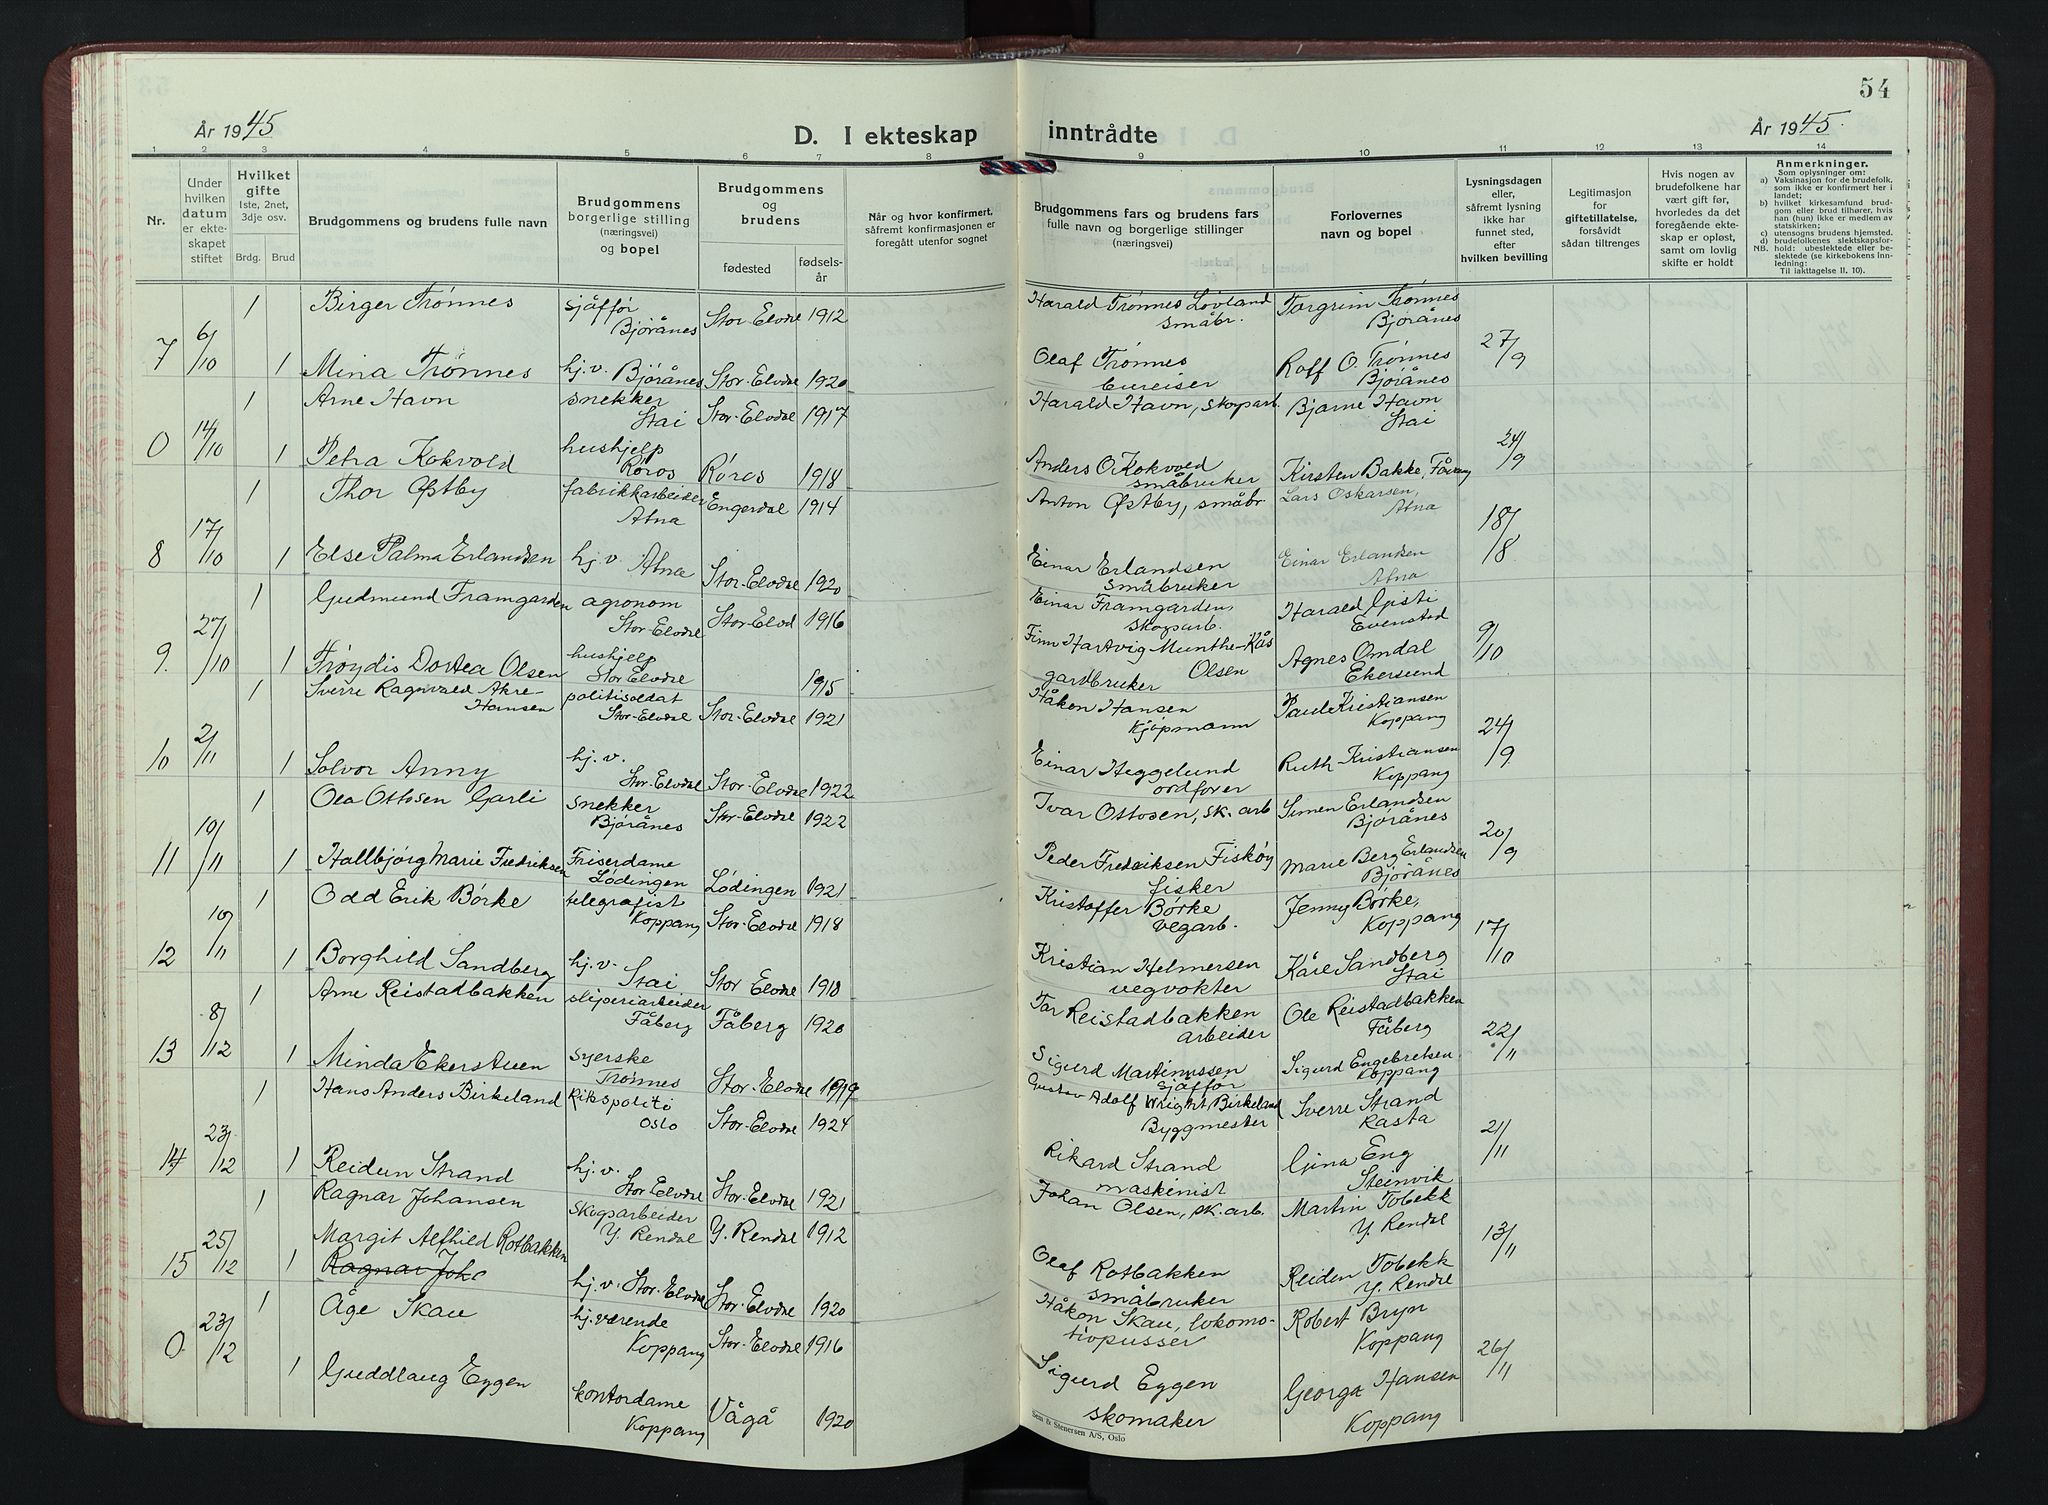 54
År 1945
D. I ekteskap inntrådte
År 1945.
1 2 3 4 5 6 7 8 9 10 11 12 13 14
Nr.
Under hvilken datum er ekteskapet stiftet
Hvilket gifte 1ste, 2net, 3dje osv.
Brdg. Brud
Brudgommens og brudens fulle navn
Brudgommens borgerlige stilling (næringsvei) og bopel
Brudgommens og brudens
fødested
fødselsår
Når og hvor konfirmert, såfremt konfirmasjonen er foregått utenfor sognet
Brudgommens fars og brudens fars fulle navn og borgerlige stillinger (næringsvei)
Forlovernes navn og bopel
Lysningsdagen eller, såfremt lysning ikke har funnet sted, efter hvilken bevilling
Legitimasjon for giftetillatelse, forsåvidt sådan tiltrenges
Hvis nogen av brudefolkene har vært gift før, hvorledes da det foregående ekteskap er opløst, samt om lovlig skifte er holdt
Anmerkninger.
Som oplysninger om:
a) Vaksinasjon for de brudefolk, som ikke er konfirmert her i landet;
b) hvilket kirkesamfund brudgom eller brud tilhører, hvis han (hun) ikke er medlem av statskirken;
c) utensogns brudens hjemsted.
d) brudefolkenes slektskapsforhold: ubeslektede eller beslektede (se kirkebokens innledning:
NB. Til iakttagelse II. 10).
7 6/10 1 Birger Trønnes sjåffør Bjørånes Stor-Elvdal 1912 Harald Trønnes Løvland småbr. Torgrim Trønnes Bjørånes 27/9
1 Mina Trønnes hj.v. Bjørånes Stor-Elvdal 1920 Olaf Trønnes bureiser Rolf O. Trønnes Bjørånes
0 14/10 1 Arne Havn snekker Stai Stor-Elvdal 1917 Harald Havn, skogarb. Bjarne Havn Stai 24/9
1 Petra Kokvold hushjelp Røros Røros 1918 Anders O. Kokvold småbruker Kirsten Bakke, Fåvang
8 17/10 1 Thor Østby fabrikkarbeider Atna Engerdal 1914 Anton Østby, småbr. Lars Oskarsen, Atna 18/8
1 Else Palma Erlandsen hj.v. Atna Stor-Elvdal 1920 Einar Erlandsen småbruker Einar Erlandsen Atna
9. 27/10 1 Gudmund Framgarden agronom Stor-Elvdal Stor-Elvd 1916 Einar Framgarden, skogarb. Harald Gisti Evenstad 9/10
1 Frøydis Dortea Olsen hushjelp Stor Elvdal 1915 Finn Hartvig Munthe-Kås Olsen gardbruker Agnes Omdal Ekersund
10 2/11 1 Sverre Ragnvald Akre-Hansen politisoldat Stor-Elvdal Stor-Elvdal 1921 Håkon Hansen Kjøpmann Paul Kristiansen Koppang 24/9
1 Solvor Anny hj.v. Stor-Elvdal Stor-Elvdal 1922 Einar Heggelund ordfører Ruth Kristiansen Koppang
11 10/11 1 Ola Ottosen Garli snekker Bjørånes Stor-Elvdal 1922 Ivar Ottosen, sk. arb Simen Erlandsen Bjørånes 20/9
1 Hallbjørg Marie Fredriksen Friserdame Lødingen Lødingen 1921 Peder Fredriksen Fiskøy fisker Marie Berg Erlandsen Bjørånes
12 10/11 1 Odd Erik Børke telegrafist Koppang Stor-Elvdal 1918 Kristoffer Børke vegarb. Jenny Børke, Koppang 17/10
1 Borghild Sandberg hj.v. Stai Stor Elvdal 1918 Kristian Helmersen vegvokter Kåre Sandberg Stai
13 8/12 1 Arne Reistadbakken sliperiarbeider Fåberg Fåberg 1920 Tor Reistadbakken arbeider Ole Reistadbakken Fåberg 22/11
1 Minda Ekerstuen syerske Trønnes Stor-Elvdal 1919 Sigurd Martinussen sjåffør Sigurd Engebretsen Koppang
14 23/12 1 Hans Anders Birkeland Rikspoliti Oslo Stor-Elvdal 1924 Gustav Adolf Wright Birkeland Byggmester Sverre Strand Rasta 21/11
1 Reidun Strand hj.v. Stor Elvdal Stor-Elvdal 1921 Rikard Strand maskinist Gina Eng Steinvik
15 25/12 1 Ragnar Johansen skogsarbeider Y. Rendal Y. Rendal 1912 Johan Olsen, sk. arb. Martin Tobekk Y. Rendal 13/11
1 Margit Alfhild Rotbakken Ragnar Joh hj.v. Stor-Elvdal Stor-Elvdal 1920 Olaf Rotbakken småbruker Reiden Tobekk Y. Rendal
0 23/12 1 Åge Skau hj. værende Koppang Stor-Elvdal 1916 Håkon Skau, lokomotivpusser Robert Bryn Koppang 26/11
1 Guddlaug Eggen kontordame Koppang Vågå 1920 Sigurd Eggen skomaker Georga Hansen Koppang
Sem & Stenersen A/S, Oslo